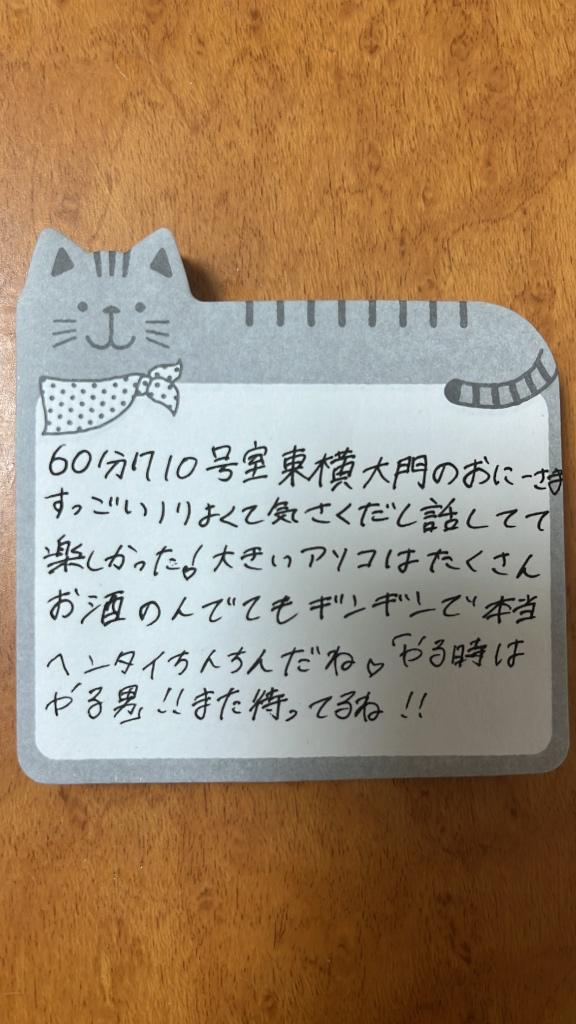 60分710号室東横大門のおにーさま
すっごいノリよくて気さくだし話してて
楽しかった♡大きいアソコはたくさん
お酒のんでてもギンギンで本当
ヘンタイちんちんだね♡「やる時は
やる男」!!また待ってるね!!